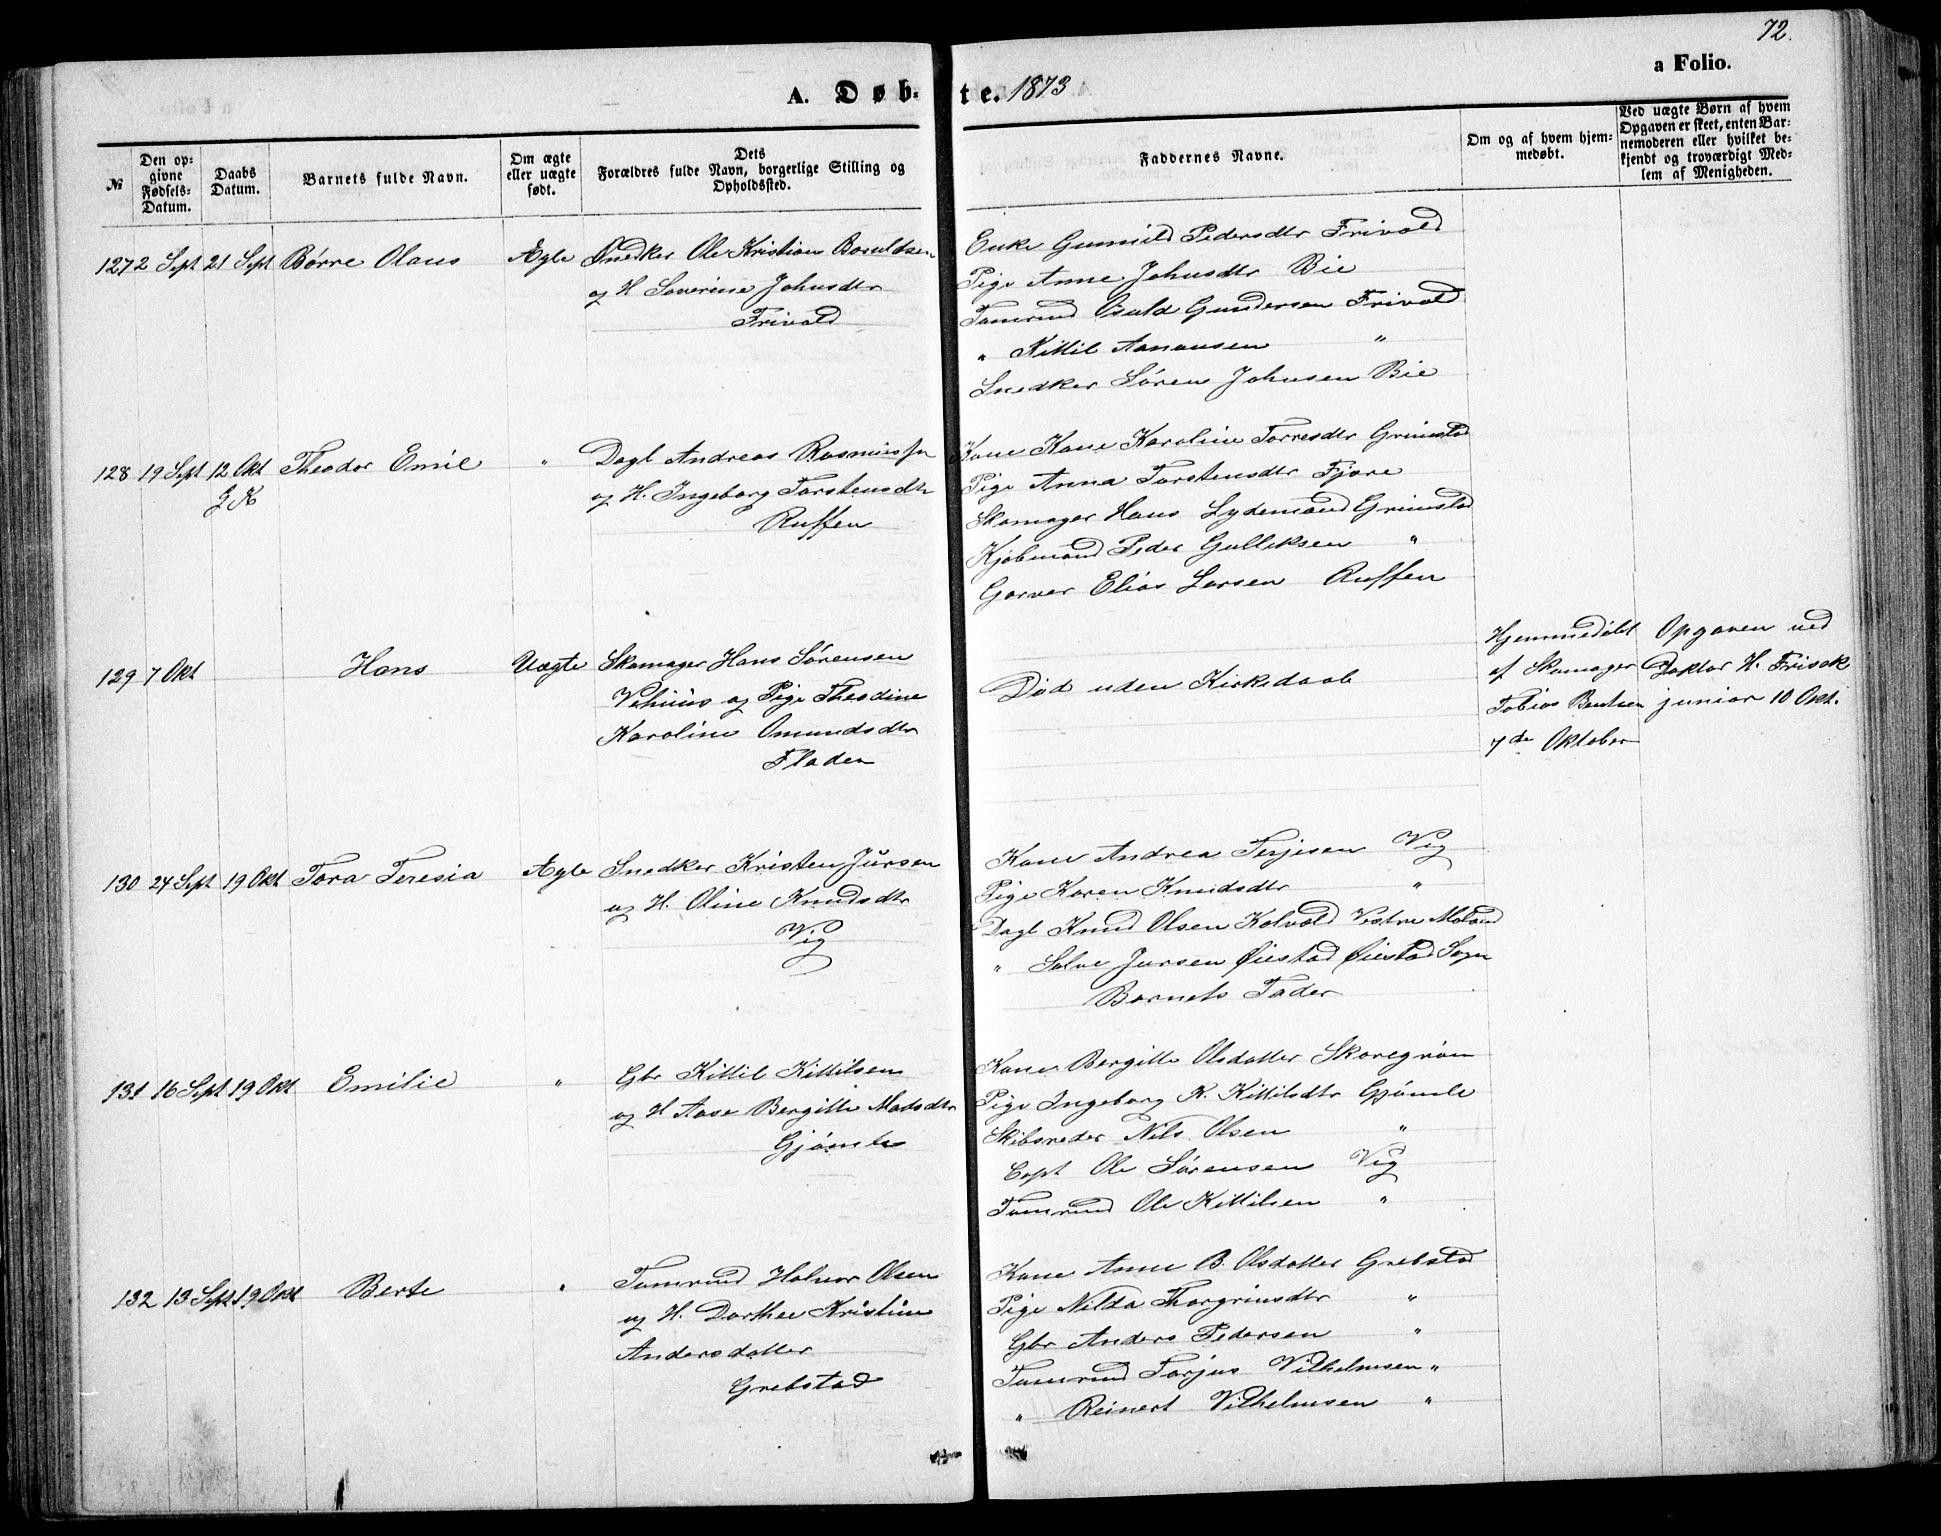 72.
a Folio.
A. Døbte. 1873
№
Den opgivne Fødsels-Datum.
Daabs Datum.
Barnets fulde Navn.
Om ægte eller uægte født.
Dets Forældres fulde Navn, borgerlige Stilling og Opholdssted.
Faddernes Navne.
Om og af hvem hjemmedøbt.
Ved uægte Børn af hvem Opgaven er skeet, enten Barnemoderen eller hvilket bekjendt og troværdigt Medlem af Menigheden.
127 2 Sept 21 Sept Børre Olaus Ægte Snedker Ole Kristian Bosuldsen
og H Severine Johnsdtr
Frivold
Enke Gunnild Pedersdtr Frivold
Pige Anne Johnsdtr Bie
Tømrmd Osuld Gundersen Frivold
" Kittil Aanonsen "
Snedker Sören Johnsen Bie
128 19 Sept 12 Okt Theodor Emil " Dagl Andreas Rasmussen
G K og H. Ingeborg Torstensdtr
Ruffen
Kone Karoline Torresdtr Grimstad
Pige Anna Torstensdtr Fjære
Skomager Hans Lydemand Grimstad
Kjøbmand Peder Gulliksen "
Garver Elias Larsen Ruffen
129 7 Okt Hans Uægte Skomager Hans Sørensen
Vehuus og Pige Theodine
Karoline Omundsdtr
Fladen
Död uden Kirkedaab
Hjemmedøbt
af Skomager
Tobias Bentsen
7de Oktober
Opgaven ved
Doktor H. Frisak
junior 10 Okt.
130 24 Sept 19 Okt Tora Teresia Ægte Snedker Kristen Jursen
og H. Oline Knudsdtr
Vig
Kone Andrea Terjesen Vig
Pige Karen Knudsdtr "
Dagl Knud Olsen Kolvold Vestre Moland
" Salve Jursen Øiestad Øiestad Sogn
Barnets Fader
131 16 Sept 19 Okt Emilie " Gbr Kittil Kittilsen
og H Aase Bergitte Madsdtr
Gjömle
Kone Bergitte Olsdatter Skaregrøm
Pige Ingeborg K. Kittilsdtr Gjömle
Skibsreder Nils Olsen "
Capt Ole Sörensen Vig
Tømrmd Ole Kittilsen "
132 13 Sept 19 Okt Berte " Tømrmd Halvor Olsen
og H. Dorthea Kristine
Andersdatter
Grebstad
Kone Anne B. Olsdatter Grebstad
Pige Nilda Thorgrimsdtr "
Gbr Anders Pedersen "
Tømrmd Torjus Vilhelmsen "
" Reinert Vilhelmsen "